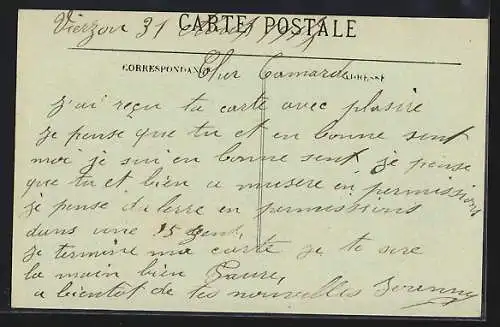 CARTE POSTALE
Vierzon 31
CORRESPONDANCE ADRESSE
Cher Camarde
j'ai reçu ta carte avec plasire
je pense que tu et en bonne sent
moi je sui en bonne sent, je pense
que tu et bien a musere en permission
je pense da lerre en permissions
dans une 15 jent,
je termine ma carte je te sere
la main bien
a bientot de tes nouvelles